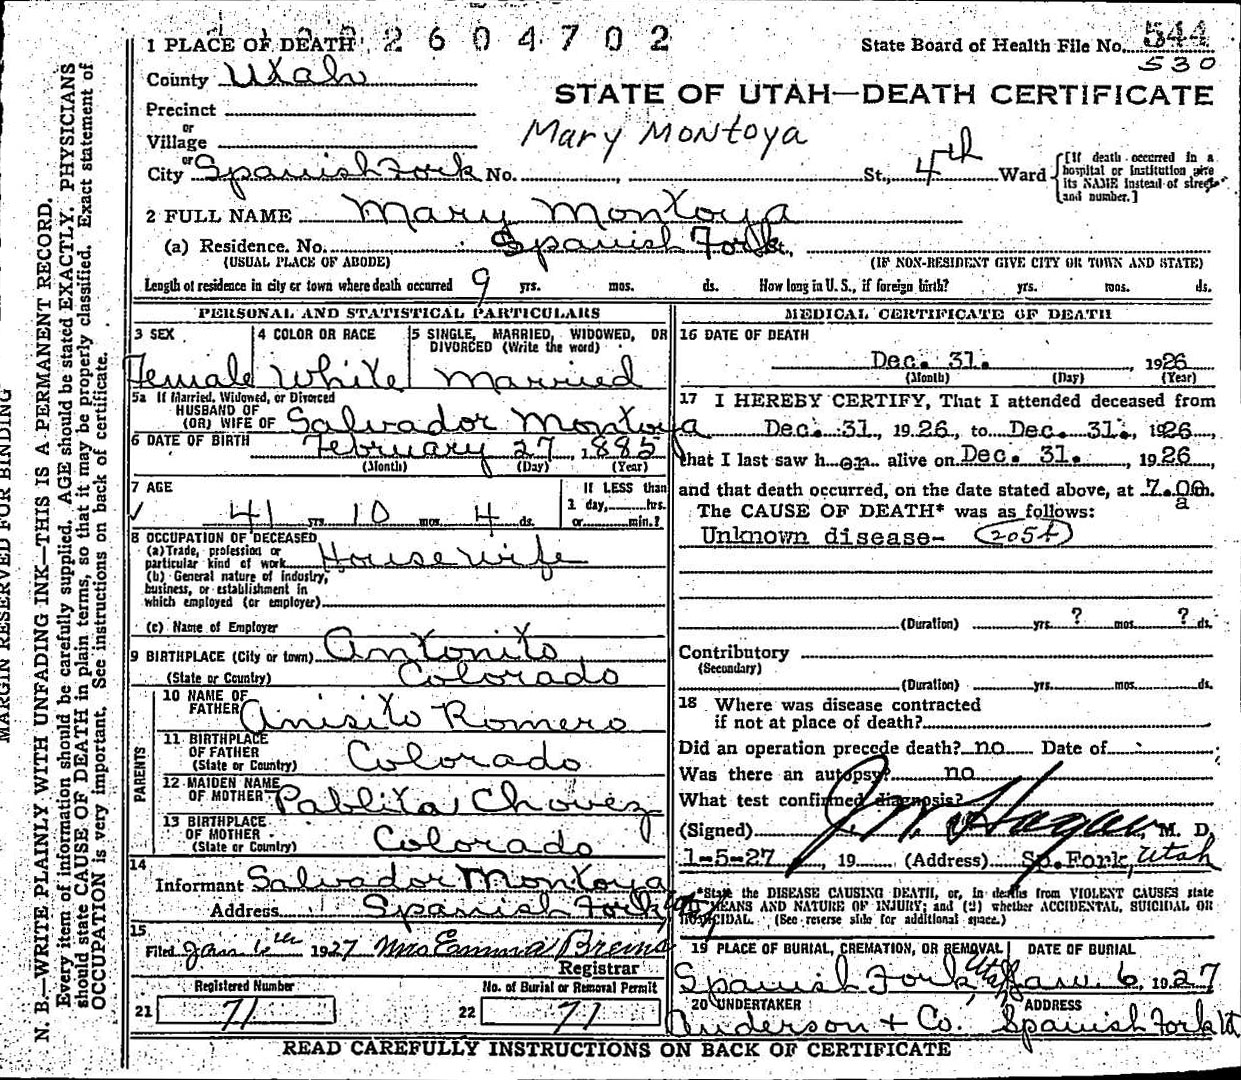 1 9 2 2 6 0 4 7 0 2
1 PLACE OF DEATH
State Board of Health File No. 544
530
County Utah
STATE OF UTAH—DEATH CERTIFICATE
Precinct
or
Village
Mary Montoya
or
City Spanish Fork No. , St., 4th Ward
[If death occurred in a hospital or institution give its NAME instead of street and number.]
2 FULL NAME Mary Montoya
(a) Residence. No. Spanish Fork St.,
(USUAL PLACE OF ABODE) (IF NON-RESIDENT GIVE CITY OR TOWN AND STATE)
Length of residence in city or town where death occurred 9 yrs. mos. ds. How long in U. S., if foreign birth? yrs. mos. ds.
PERSONAL AND STATISTICAL PARTICULARS
3 SEX
Female
4 COLOR OR RACE
White
5 SINGLE, MARRIED, WIDOWED, OR DIVORCED (Write the word)
Married
5a If Married, Widowed, or Divorced
HUSBAND OF
(OR) WIFE OF Salvador Montoya
6 DATE OF BIRTH February 27, 1885
(Month) (Day) (Year)
7 AGE
41 yrs. 10 mos. 4 ds.
If LESS than
1 day, hrs.
or min.?
8 OCCUPATION OF DECEASED
(a) Trade, profession or
particular kind of work House wife
(b) General nature of industry,
business, or establishment in
which employed (or employer)
(c) Name of Employer
9 BIRTHPLACE (City or town) Antonito
(State or Country) Colorado
PARENTS
10 NAME OF
FATHER Anisito Romero
11 BIRTHPLACE
OF FATHER
(State or Country) Colorado
12 MAIDEN NAME
OF MOTHER Pablita Chovez
13 BIRTHPLACE
OF MOTHER
(State or Country) Colorado
14
Informant Salvador Montoya
Address Spanish Fork Utah
15
Filed Jan 6th 1927 Mrs Emma Brems
Registrar
Registered Number
21 71
No. of Burial or Removal Permit
22 71
MEDICAL CERTIFICATE OF DEATH
16 DATE OF DEATH
Dec. 31. , 1926
(Month) (Day) (Year)
17 I HEREBY CERTIFY, That I attended deceased from
Dec. 31., 1926, to Dec. 31., 1926,
that I last saw h er alive on Dec. 31. , 1926
and that death occurred, on the date stated above, at 7.00 m.
a
The CAUSE OF DEATH* was as follows:
Unknown disease- 205t
(Duration) yrs. ? mos. ? ds.
Contributory
(Secondary)
(Duration) yrs. mos. ds.
18 Where was disease contracted
if not at place of death?
Did an operation precede death? no Date of
Was there an autopsy? no
What test confirmed diagnosis?
(Signed) J. W. Hagan, M. D.
1-5-27 , 19 (Address) Sp. Fork, Utah
*State the DISEASE CAUSING DEATH, or, in deaths from VIOLENT CAUSES state
(1) MEANS AND NATURE OF INJURY; and (2) whether ACCIDENTAL, SUICIDAL OR
HOMICIDAL. (See reverse side for additional space.)
19 PLACE OF BURIAL, CREMATION, OR REMOVAL
Spanish Fork, Utah
DATE OF BURIAL
Jan. 6, 1927
20 UNDERTAKER
Anderson + Co.
ADDRESS
Spanish Fork Ut
READ CAREFULLY INSTRUCTIONS ON BACK OF CERTIFICATE
MARGIN RESERVED FOR BINDING
N. B.—WRITE PLAINLY WITH UNFADING INK—THIS IS A PERMANENT RECORD.
Every item of information should be carefully supplied. AGE should be stated EXACTLY. PHYSICIANS
should state CAUSE OF DEATH in plain terms, so that it may be properly classified. Exact statement of
OCCUPATION is very important. See instructions on back of certificate.